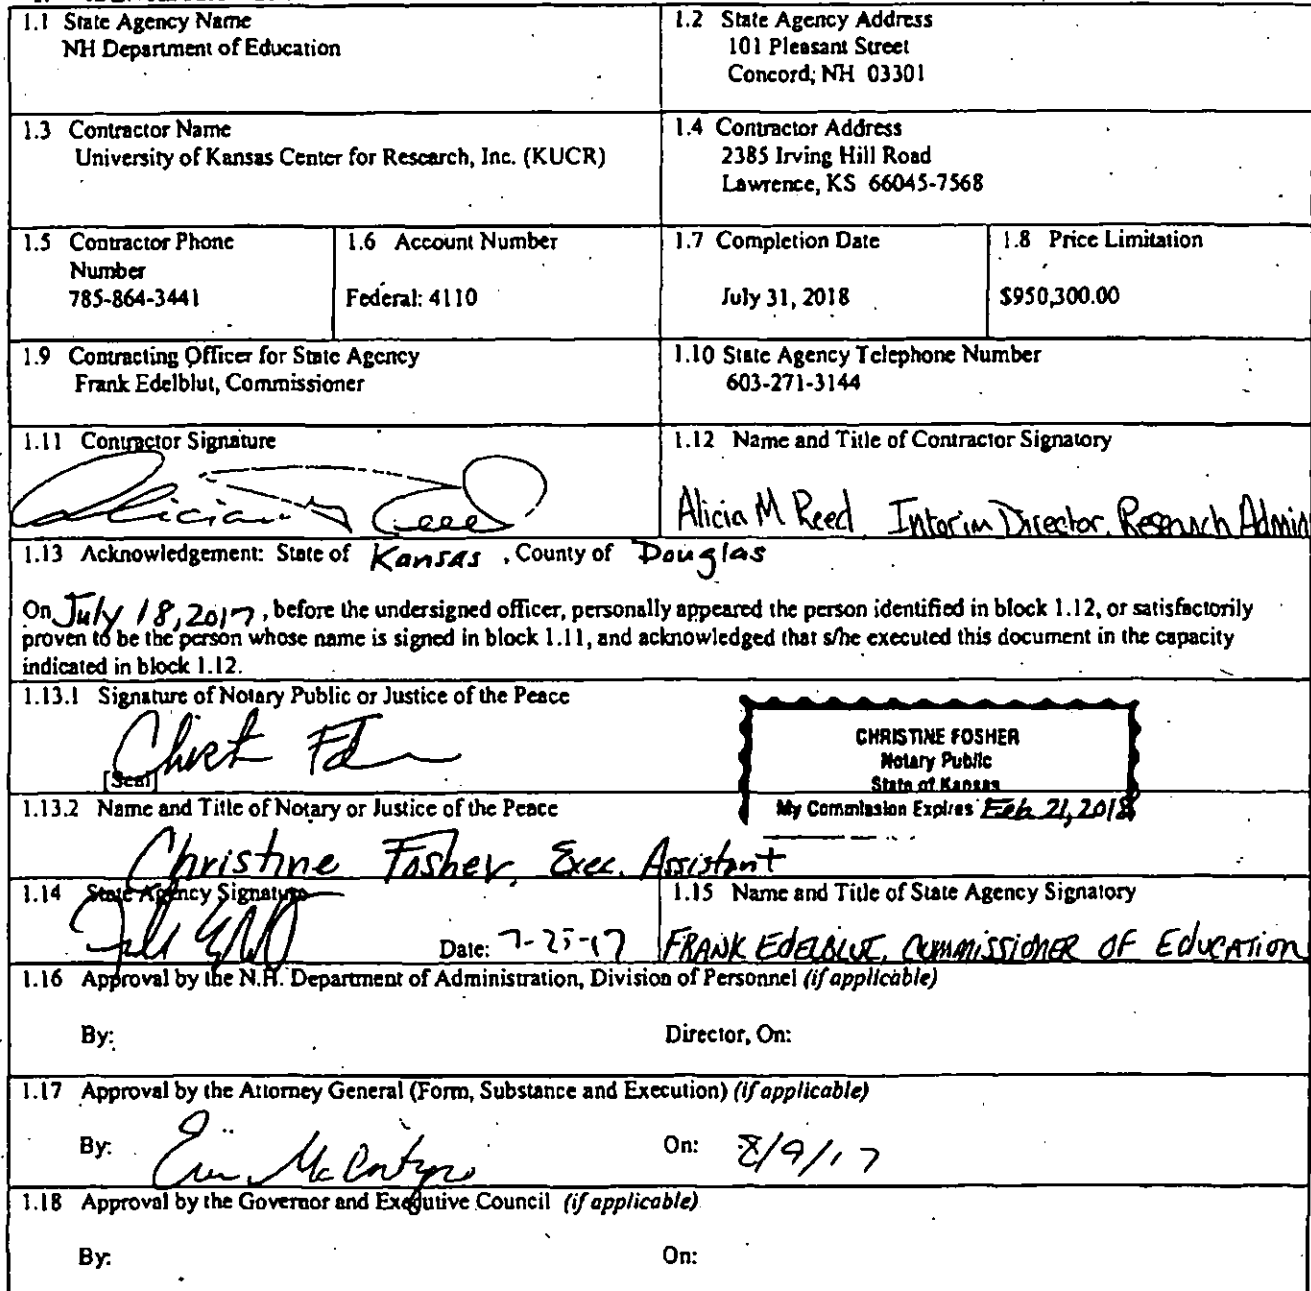 1.1 State Agency Name
NH Department of Education
1.2 State Agency Address
101 Pleasant Street
Concord, NH 03301
1.3 Contractor Name
University of Kansas Center for Research, Inc. (KUCR)
1.4 Contractor Address
2385 Irving Hill Road
Lawrence, KS 66045-7568
1.5 Contractor Phone
Number
785-864-3441
1.6 Account Number
Federal: 4110
1.7 Completion Date
July 31, 2018
1.8 Price Limitation
$950,300.00
1.9 Contracting Officer for State Agency
Frank Edelblut, Commissioner
1.10 State Agency Telephone Number
603-271-3144
1.11 Contractor Signature
Alicia M Reed
1.12 Name and Title of Contractor Signatory
Alicia M Reed, Interim Director, Research Admin
1.13 Acknowledgement: State of Kansas, County of Douglas
On July 18, 2017, before the undersigned officer, personally appeared the person identified in block 1.12, or satisfactorily
proven to be the person whose name is signed in block 1.11, and acknowledged that s/he executed this document in the capacity
indicated in block 1.12.
1.13.1 Signature of Notary Public or Justice of the Peace
[Seal]
CHRISTINE FOSHER
Notary Public
State of Kansas
My Commission Expires Feb 21, 2018
1.13.2 Name and Title of Notary or Justice of the Peace
Christine Fosher, Exec. Assistant
1.14 State Agency Signature
Date: 7-25-17
1.15 Name and Title of State Agency Signatory
FRANK EDELBLUT, COMMISSIONER OF EDUCATION
1.16 Approval by the N.H. Department of Administration, Division of Personnel (if applicable)
By: Director, On:
1.17 Approval by the Attorney General (Form, Substance and Execution) (if applicable)
By: On: 8/9/17
1.18 Approval by the Governor and Executive Council (if applicable)
By: On: